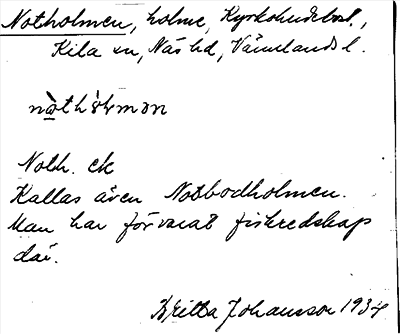 Notholmen, holme, Kyrkohudebol,
Kila sn, Näs hd, Värmlands l.
Noth. ek
Kallas även Notbodholmen.
Man har förvarat fiskredskap
där.
Britta Johansson 1934